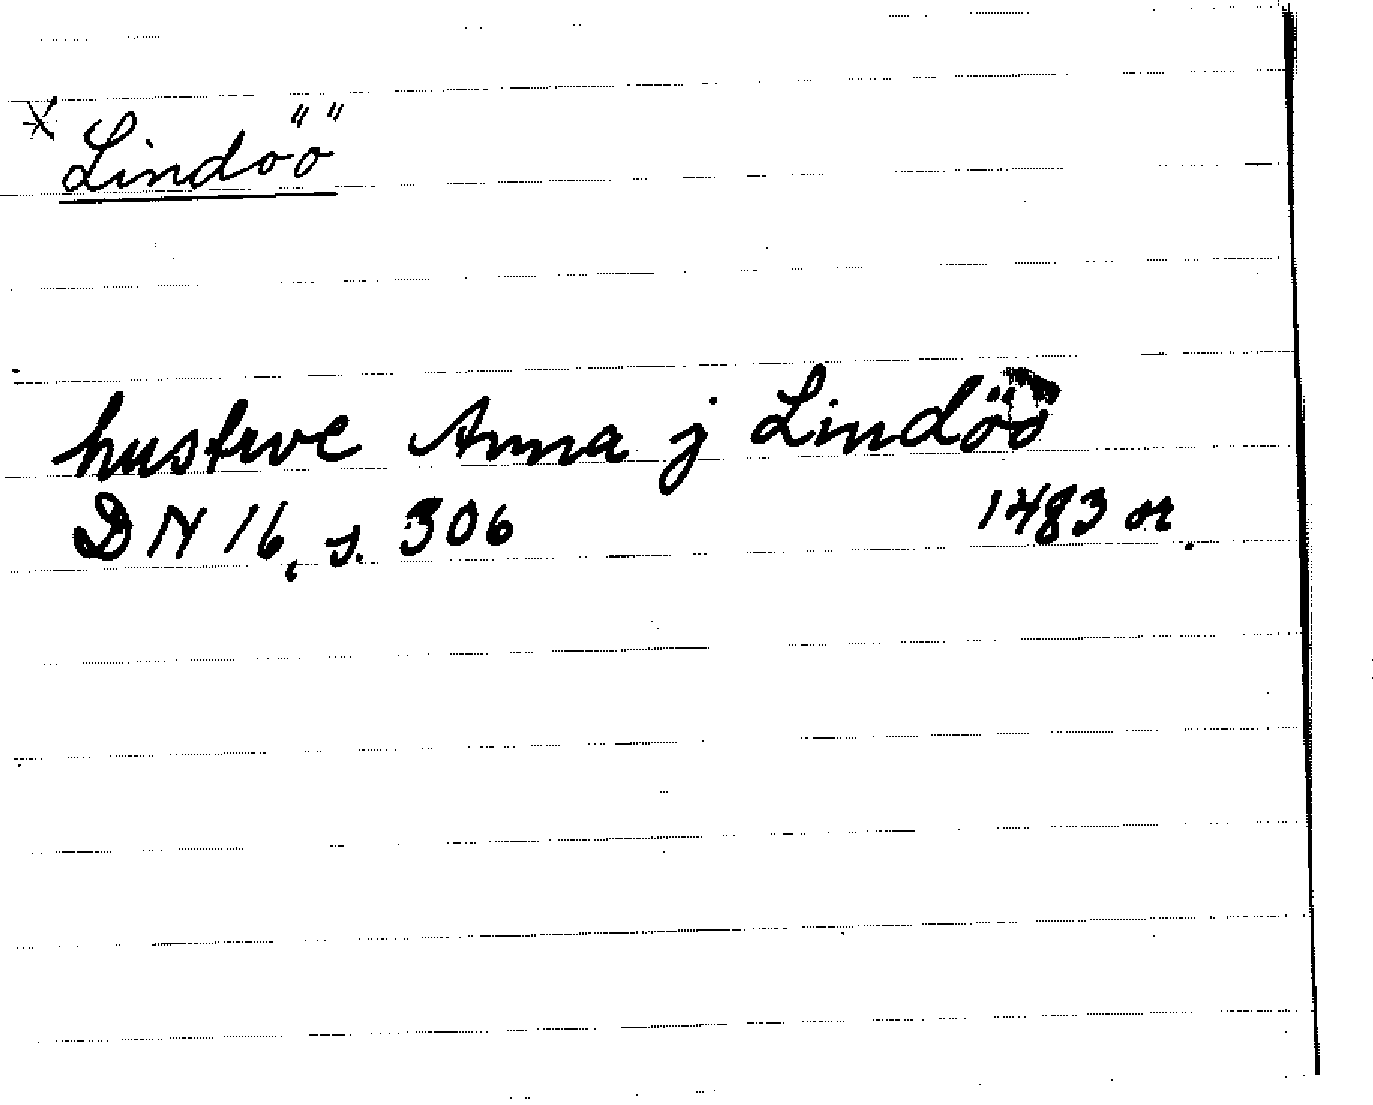 x Lindöö
hustrve Anna j Lindöö
DN 16, s. 306 1483 or.